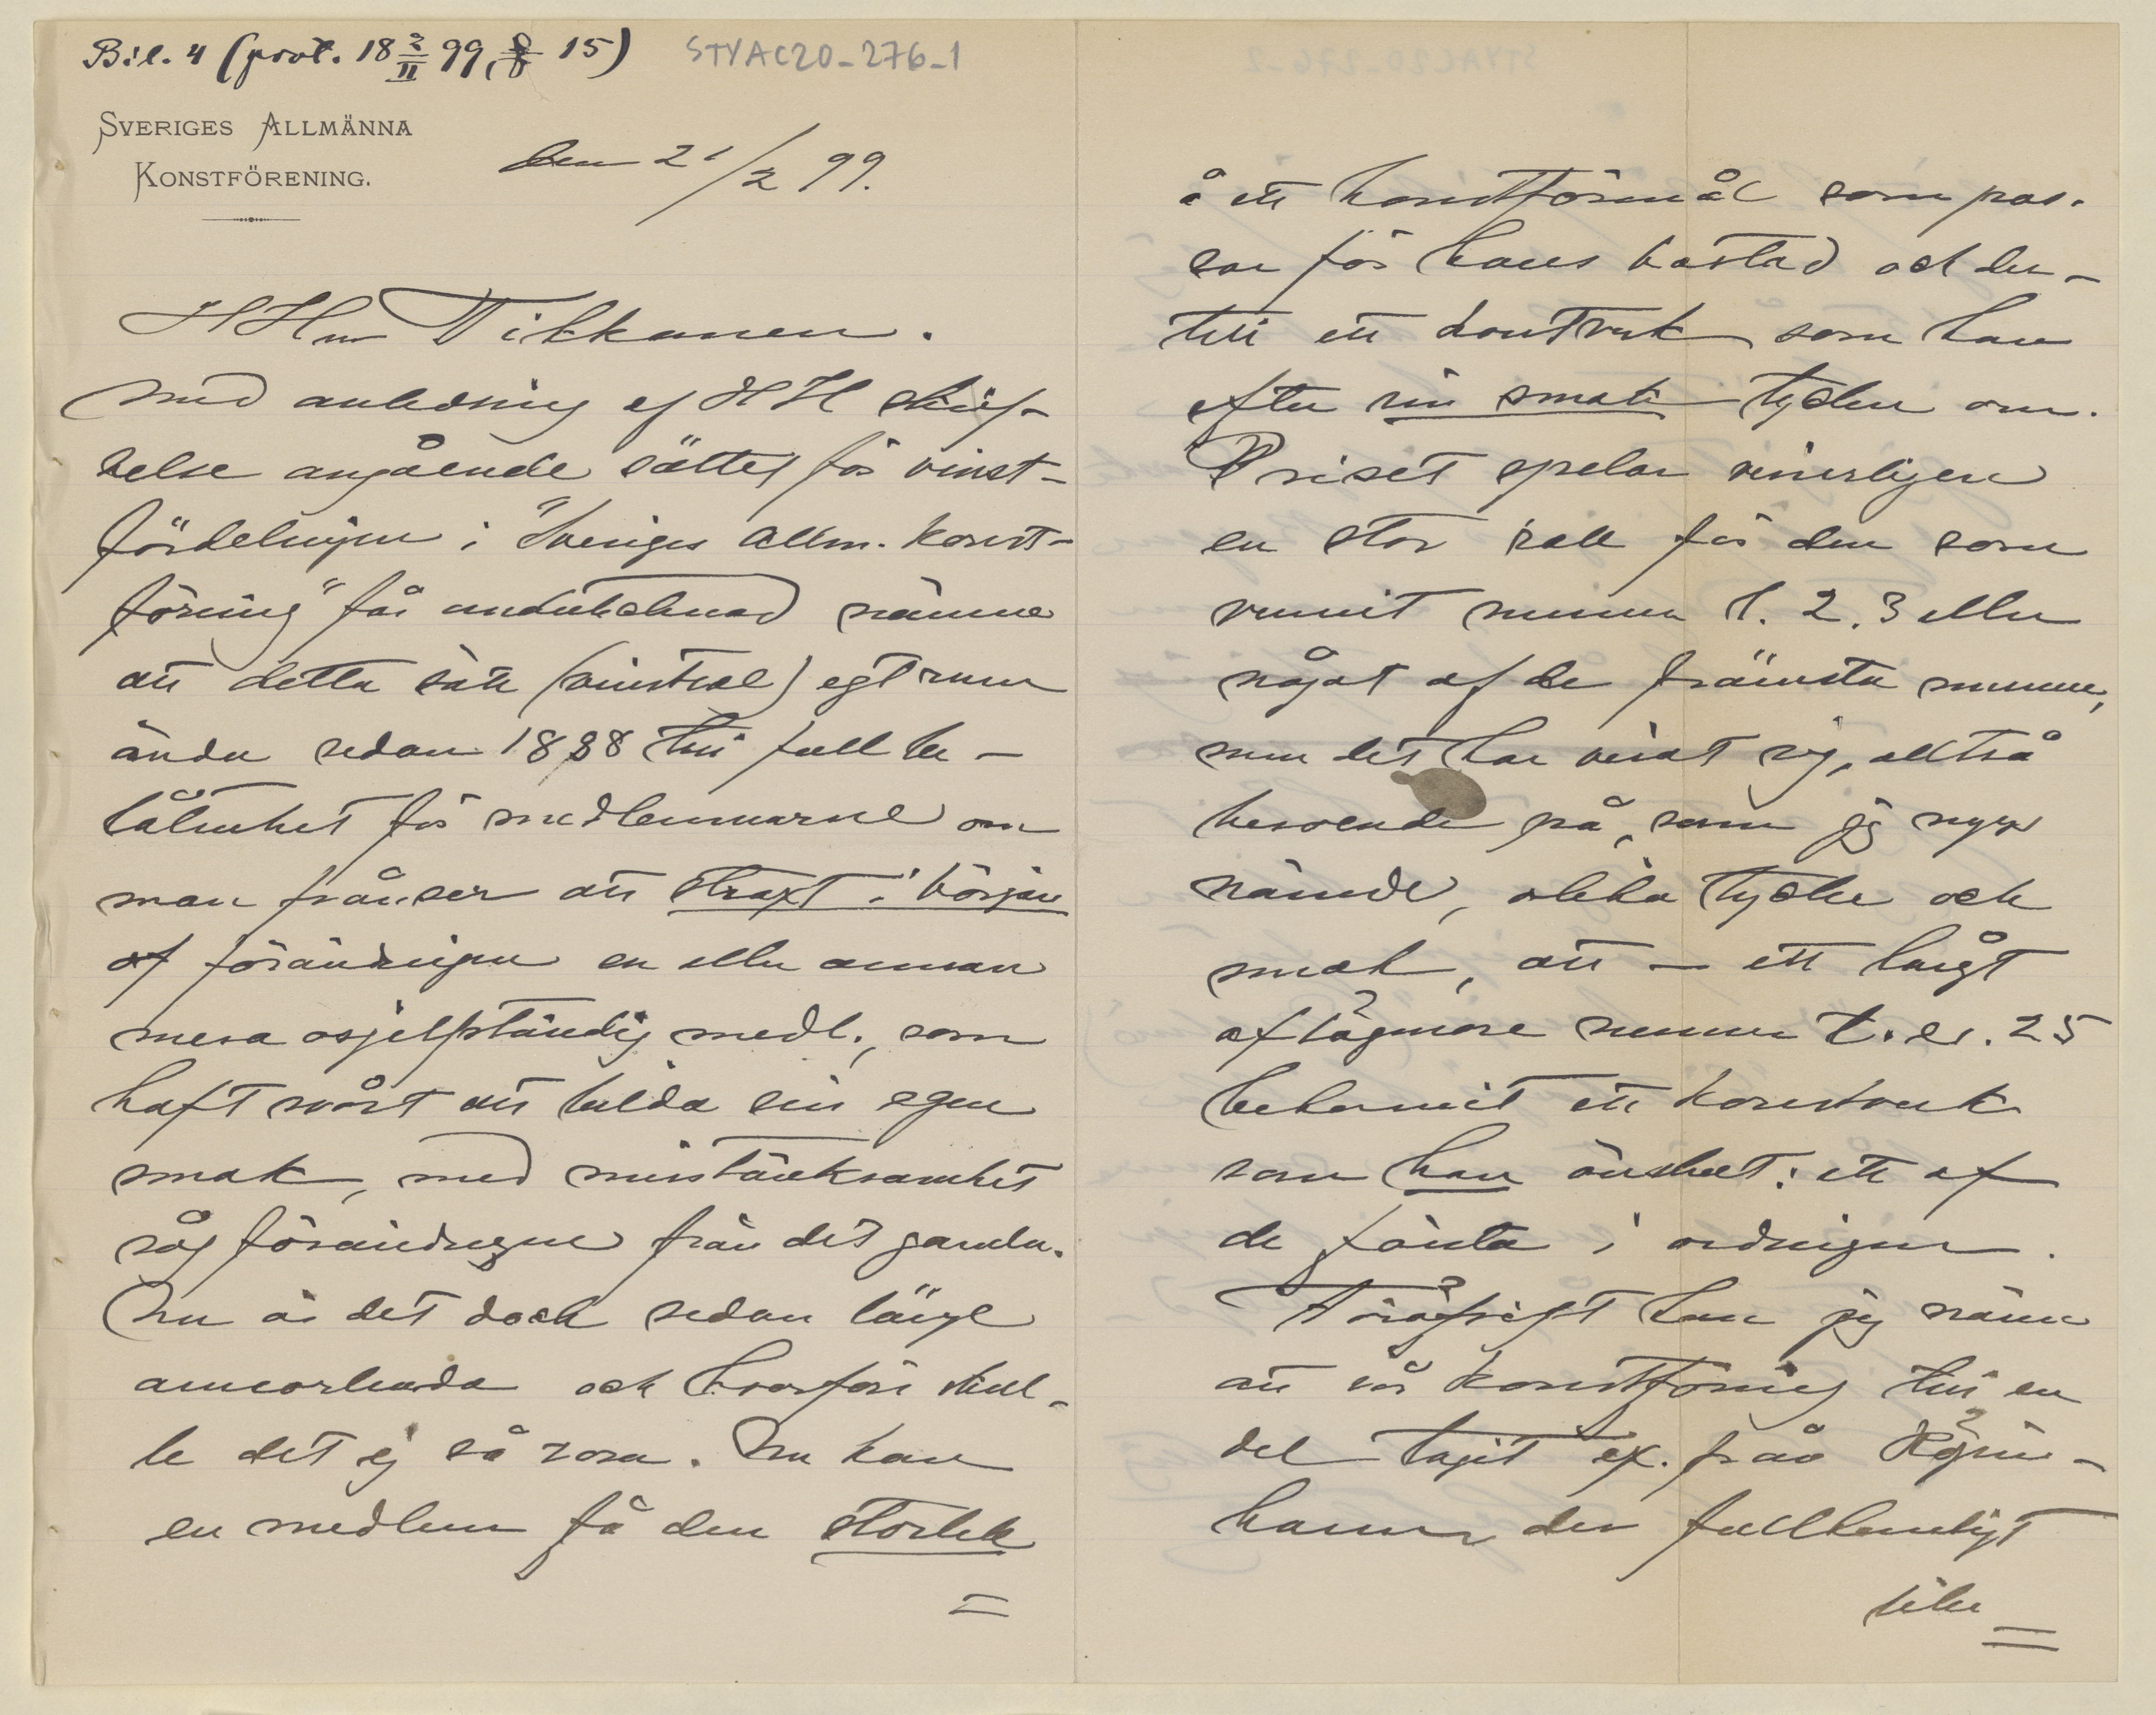 Bil. 4 (prot. 18 2/II 99, § 15) STYAC20-276-1
SVERIGES ALLMÄNNA
KONSTFÖRENING.
den 21/2 99.
HHrr Tikkanen.
Med anledning af HH skrif-
velse angående sättet för vinst-
fördelningen i "Sveriges Allm. Konst-
förening" får undertecknad nämna
att detta sätt (vinstval) egt rum
ända sedan 1888 till full be-
låtenhet för medlemmarne om
man frånser att straxt i början
af förändringen en eller annan
mera osjelfständig medl., som
haft svårt att bilda sin egen
smak, med misstänksamhet
såg förändringen från det gamla.
Nu är det dock sedan länge
annorlunda och hvarför skul-
le det ej så vara. Nu kan
en medlem få den storlek
å ett konstföremål som pas-
sar för hans bostad och der-
till ett konstverk som han
efter sin smak tycker om.
Priset spelar visserligen
en stor roll för den som
vunnit nummer 1. 2. 3 eller
något af de främsta numren,
men det har visat sig, alltså
beroende på, som jag nyss
nämnde, olika tycke och
smak, att — ett långt
aflägsnare nummer t. ex. 25
bekommit ett konstverk
som han önskat: ett af
de första i ordningen.
Föröfrigt kan jag nämna
att vår konstförening till en
del tagit ex. från Köpen-
hamn der fullkomligt